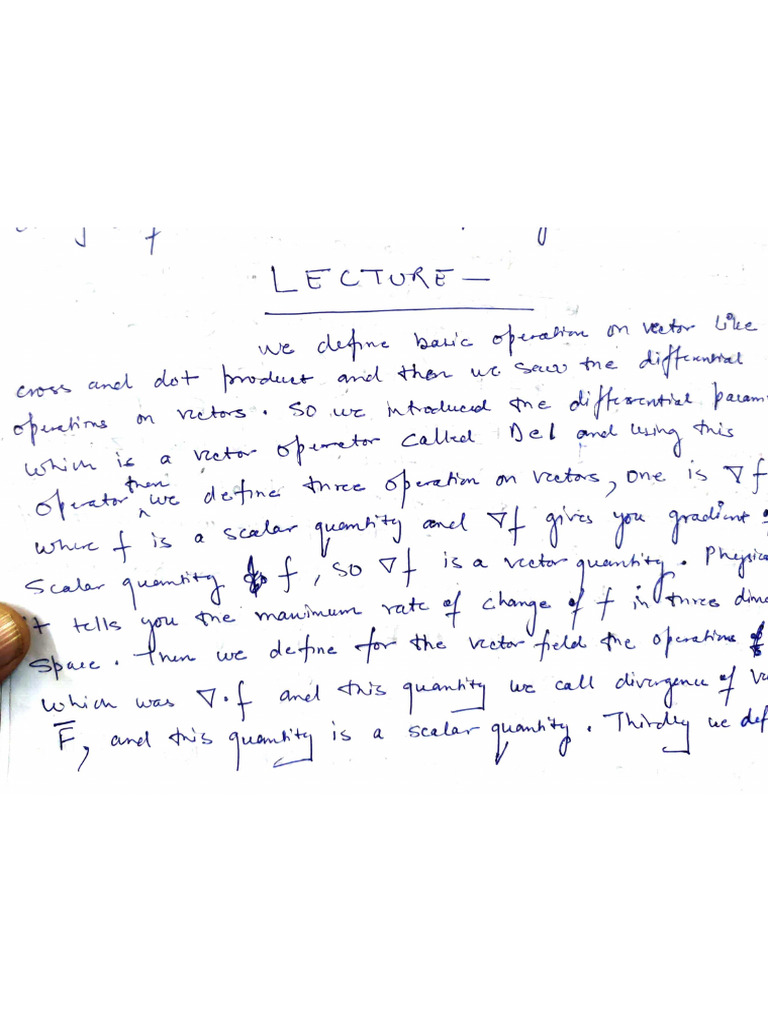 LECTURE —
we define basic operation on vector like
cross and dot product and then we saw the differential
operations on vectors. So we introduced the differential param
which is a vector operator called Del and using this
then
operator we define three operation on vectors, one is ∇f
where f is a scalar quantity and ∇f gives you gradient of
scalar quantity f, so ∇f is a vector quantity. Physica
it tells you the maximum rate of change of f in three dime
space. Then we define for the vector field the operation
which was ∇·f and this quantity we call divergence of ve
F̅, and this quantity is a scalar quantity. Thirdly we def